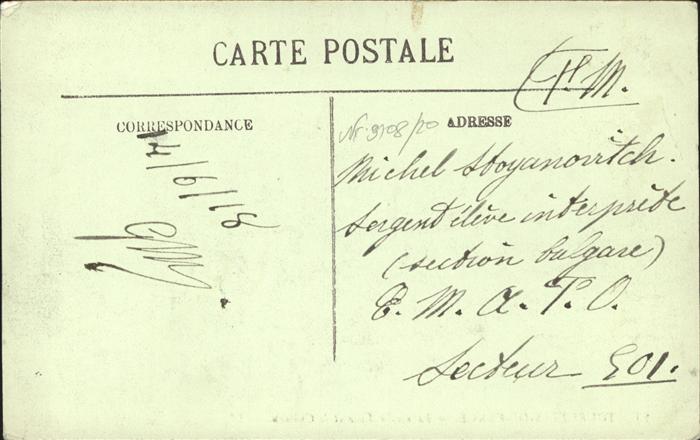 CARTE POSTALE
F. M.
CORRESPONDANCE
ADRESSE
Nr. 9108/20
17/6/18
Michel Stoyanovitch.
Sergent élève interprète
(section bulgare)
E. M. A. F. O.
Secteur 501.